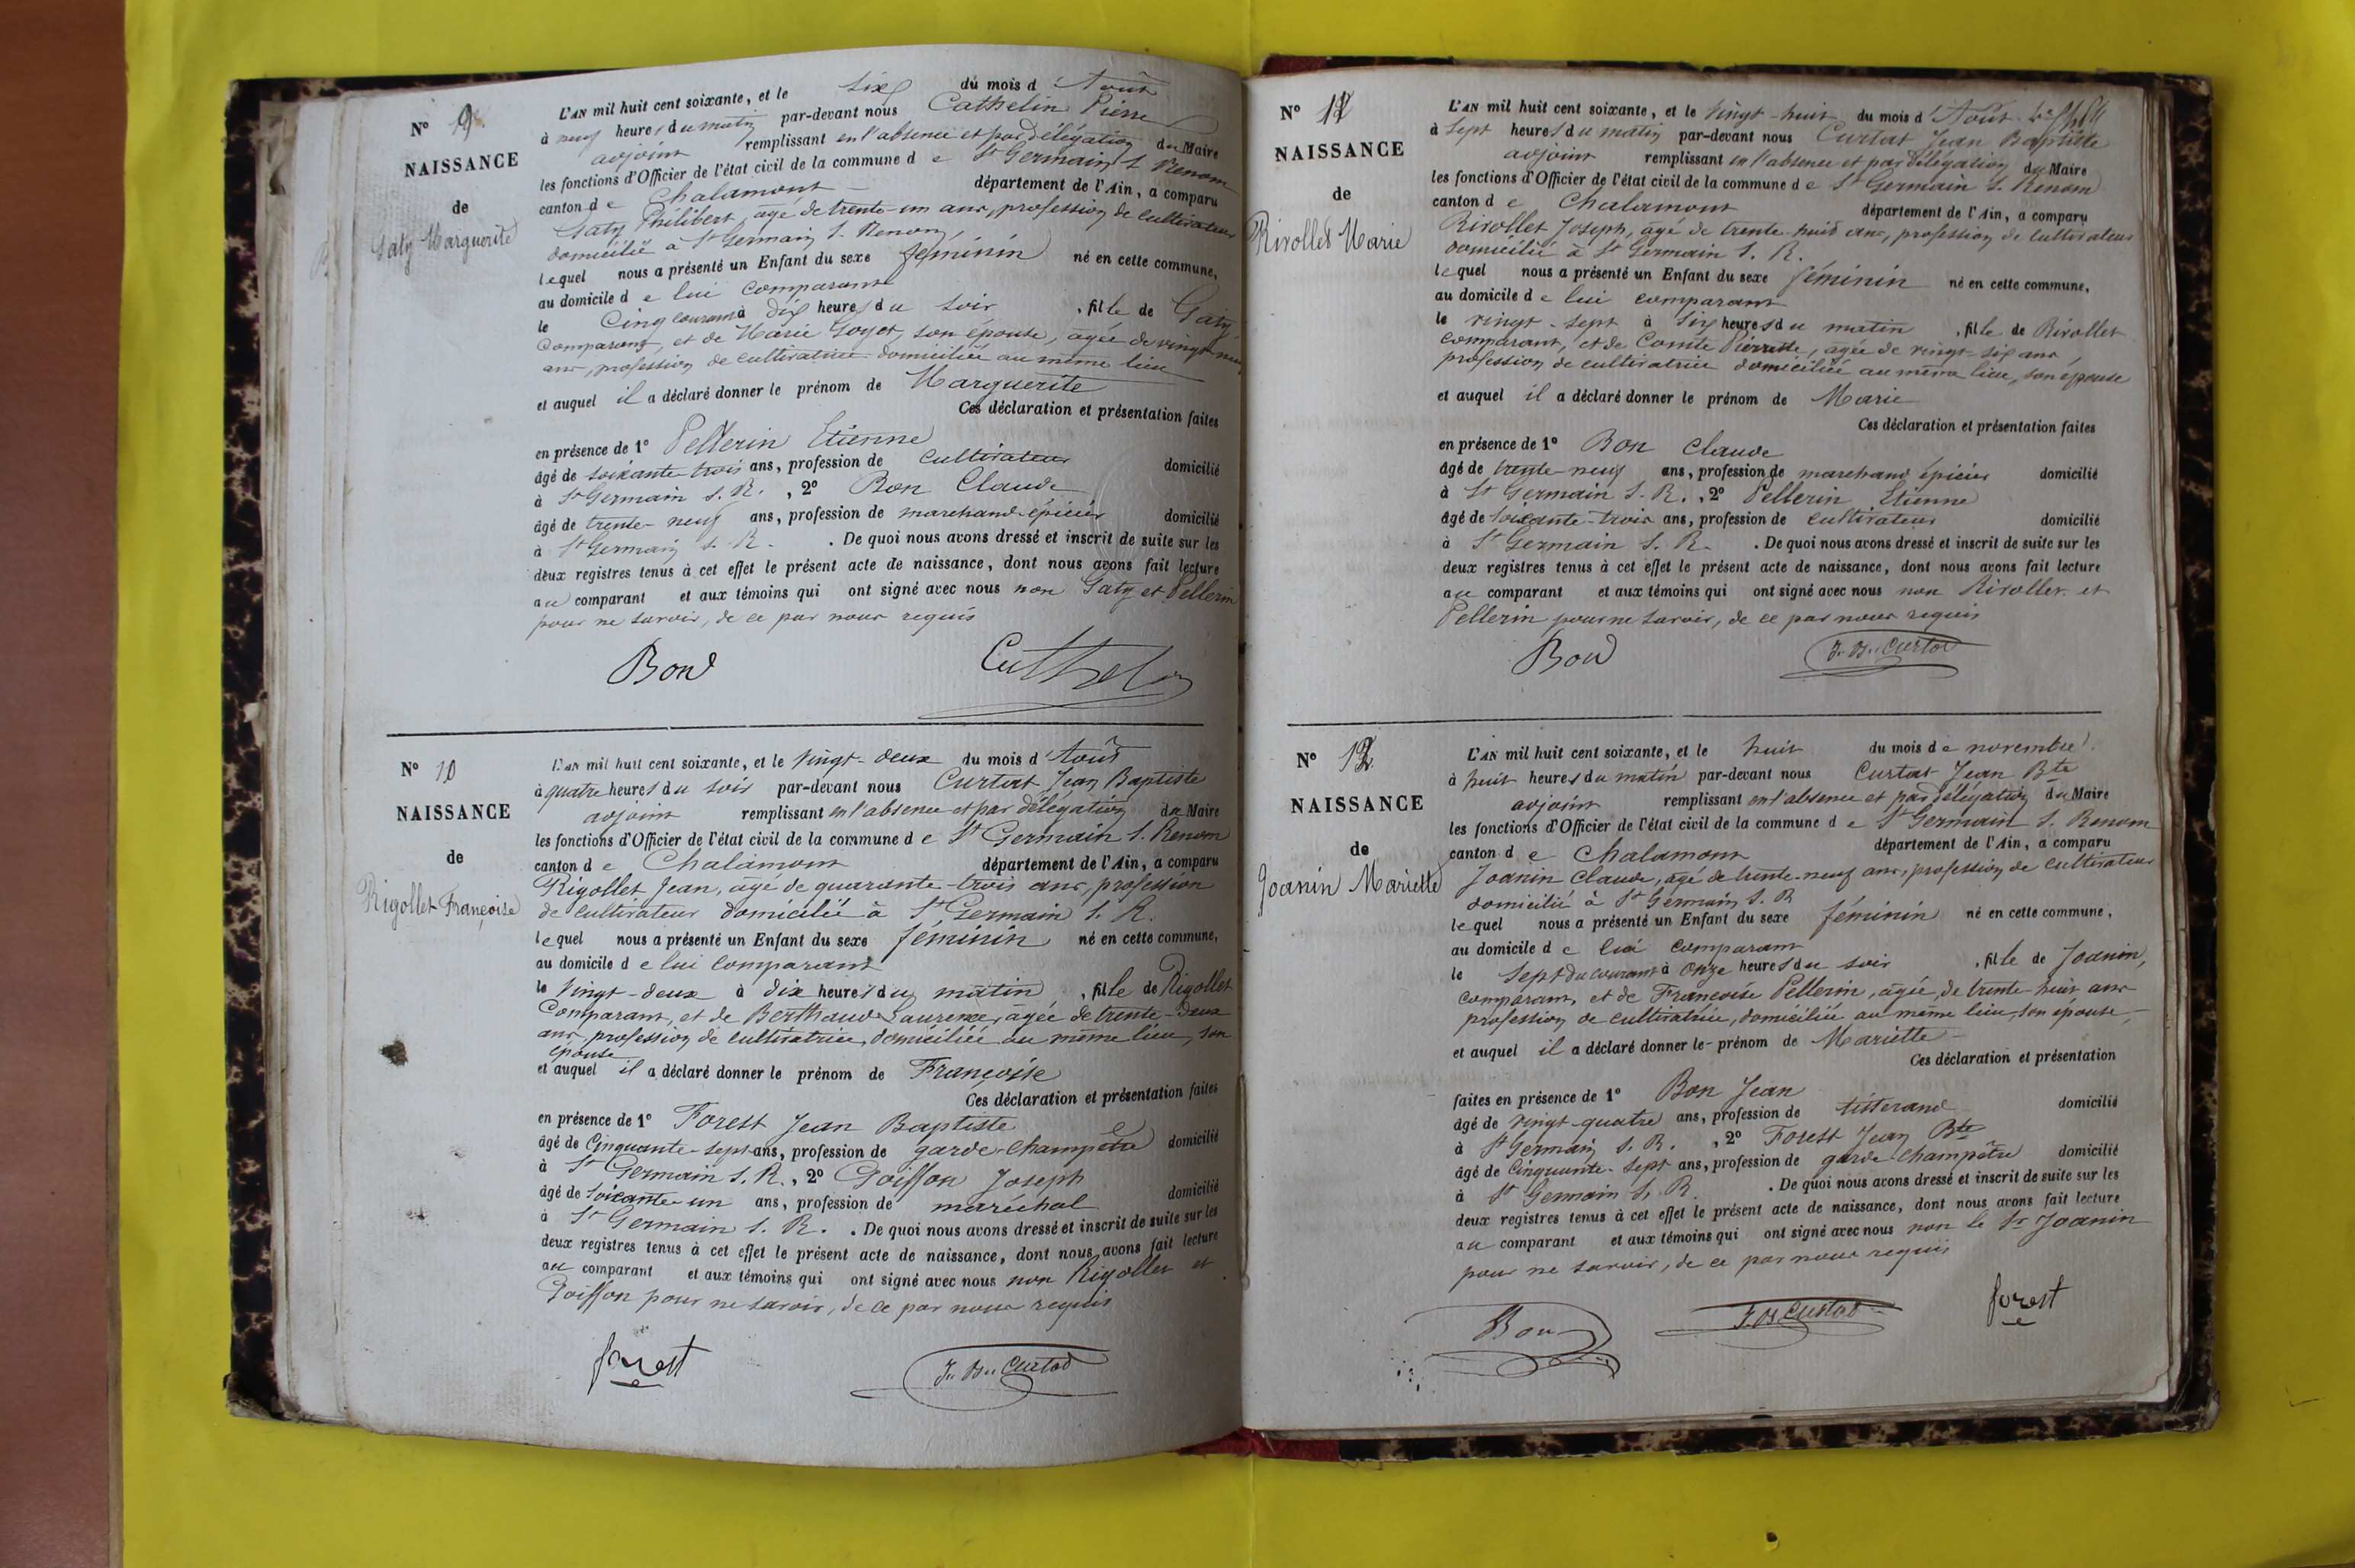 N° 9
NAISSANCE
de
Gaty Marguerite
L'AN mil huit cent soixante, et le six du mois d'Août
à neuf heures du matin par-devant nous Cathelin Pierre
adjoint remplissant en l'absence et par délégation du Maire
les fonctions d'Officier de l'état civil de la commune de St Germain S. Renom
canton de Chalamont département de l'Ain, a comparu
Gaty Philibert, âgé de trente-un ans, profession de cultivateur
domicilié à St Germain S. Renom,
lequel nous a présenté un Enfant du sexe féminin né en cette commune,
au domicile de lui comparant
le Cinq courant à dix heures du soir , fille de Gaty
Comparant, et de Marie Goyet, son épouse, âgée de vingt-neuf
ans, profession de cultivatrice domiciliée au même lieu
et auquel il a déclaré donner le prénom de Marguerite
Ces déclaration et présentation faites
en présence de 1° Pellerin Etienne
âgé de soixante-trois ans, profession de Cultivateur domicilié
à St Germain S. R. , 2° Bon Claude
âgé de trente-neuf ans, profession de marchand-épicier domicilié
à St Germain S. R. . De quoi nous avons dressé et inscrit de suite sur les
deux registres tenus à cet effet le présent acte de naissance, dont nous avons fait lecture
au comparant et aux témoins qui ont signé avec nous non Gaty et Pellerin
pour ne savoir, de ce par nous requis
Bon Cathelin
N° 10
NAISSANCE
de
Rigollet Françoise
L'AN mil huit cent soixante, et le vingt-deux du mois d'Août
à quatre heures du soir par-devant nous Curtat Jean Baptiste
adjoint remplissant en l'absence et par délégation du Maire
les fonctions d'Officier de l'état civil de la commune de St Germain S. Renom
canton de Chalamont département de l'Ain, a comparu
Rigollet Jean, âgé de quarante-trois ans, profession
de cultivateur domicilié à St Germain S. R.
lequel nous a présenté un Enfant du sexe féminin né en cette commune,
au domicile de lui comparant
le vingt-deux à dix heures du matin , fille de Rigollet
Comparant, et de Berthaud Laurence, âgée de trente-deux
ans, profession de cultivatrice, domiciliée au même lieu, son
épouse
et auquel il a déclaré donner le prénom de Françoise
Ces déclaration et présentation faites
en présence de 1° Forest Jean Baptiste
âgé de Cinquante-sept ans, profession de garde-Champêtre domicilié
à St Germain S. R. , 2° Goiffon Joseph
âgé de soixante-un ans, profession de maréchal domicilié
à St Germain S. R. . De quoi nous avons dressé et inscrit de suite sur les
deux registres tenus à cet effet le présent acte de naissance, dont nous avons fait lecture
au comparant et aux témoins qui ont signé avec nous non Rigollet et
Goiffon pour ne savoir, de ce par nous requis
forest J. B. Curtat
NAISSANCE
de
Rivollet Marie
L'AN mil huit cent soixante, et le vingt-huit du mois d'Août
à sept heures du matin par-devant nous Curtat Jean Baptiste
adjoint remplissant en l'absence et par délégation du Maire
les fonctions d'Officier de l'état civil de la commune de St Germain S. Renom
canton de Chalamont département de l'Ain, a comparu
Rivollet Joseph, âgé de trente-huit ans, profession de cultivateur
domicilié à St Germain S. R.
lequel nous a présenté un Enfant du sexe féminin né en cette commune,
au domicile de lui comparant
le vingt-sept à six heures du matin , fille de Rivollet
comparant, et de Comte Pierrette, âgée de vingt-six ans,
profession de cultivatrice domiciliée au même lieu, son épouse
et auquel il a déclaré donner le prénom de Marie
Ces déclaration et présentation faites
en présence de 1° Bon Claude
âgé de trente-neuf ans, profession de marchand épicier domicilié
à St Germain S. R. , 2° Pellerin Etienne
âgé de soixante-trois ans, profession de cultivateur domicilié
à St Germain S. R. . De quoi nous avons dressé et inscrit de suite sur les
deux registres tenus à cet effet le présent acte de naissance, dont nous avons fait lecture
au comparant et aux témoins qui ont signé avec nous non Rivollet et
Pellerin pour ne savoir, de ce par nous requis
Bon J. B. Curtat
N° 12
NAISSANCE
de
Joanin Mariette
L'AN mil huit cent soixante, et le huit du mois de novembre
à huit heures du matin par-devant nous Curtat Jean Bte
adjoint remplissant en l'absence et par délégation du Maire
les fonctions d'Officier de l'état civil de la commune de St Germain S. Renom
canton de Chalamont département de l'Ain, a comparu
Joanin Claude, âgé de trente-neuf ans, profession de cultivateur
domicilié à St Germain S. R
lequel nous a présenté un Enfant du sexe féminin né en cette commune,
au domicile de lui comparant
le sept du courant à onze heures du soir , fille de Joanin,
comparant, et de Françoise Pellerin, âgée, de trente-huit ans
profession de cultivatrice, domiciliée au même lieu, son épouse,
et auquel il a déclaré donner le prénom de Mariette
Ces déclaration et présentation
faites en présence de 1° Bon Jean
âgé de vingt-quatre ans, profession de tisserand domicilié
à St Germain S. R. , 2° Forest Jean Bte
âgé de Cinquante-sept ans, profession de garde-Champêtre domicilié
à St Germain S. R . De quoi nous avons dressé et inscrit de suite sur les
deux registres tenus à cet effet le présent acte de naissance, dont nous avons fait lecture
au comparant et aux témoins qui ont signé avec nous non le Sr Joanin
pour ne savoir, de ce par nous requis
Bon J. B. Curtat forest